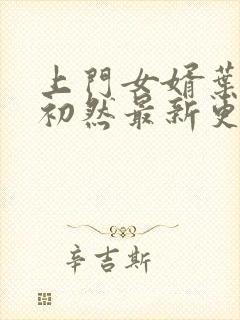 上門女婿葉
初然最新更
辛吉斯